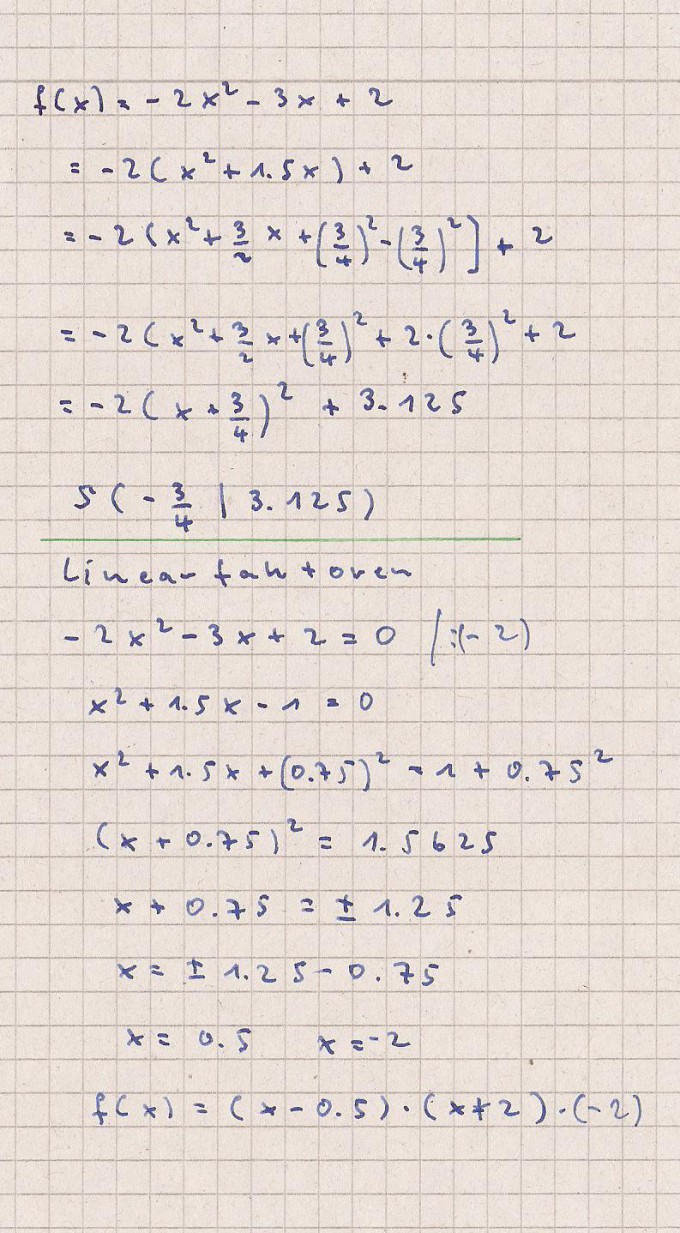 f(x) = -2x² - 3x + 2
= -2(x² + 1.5x) + 2
= -2(x² + 3/2 x + (3/4)² - (3/4)²] + 2
= -2(x² + 3/2 x + (3/4)² + 2·(3/4)² + 2
= -2(x + 3/4)² + 3.125
S(-3/4 | 3.125)
Linearfaktoren
-2x² - 3x + 2 = 0 /:(-2)
x² + 1.5x - 1 = 0
x² + 1.5x + (0.75)² = 1 + 0.75²
(x + 0.75)² = 1.5625
x + 0.75 = ± 1.25
x = ± 1.25 - 0.75
x = 0.5 x = -2
f(x) = (x - 0.5)·(x+2)·(-2)